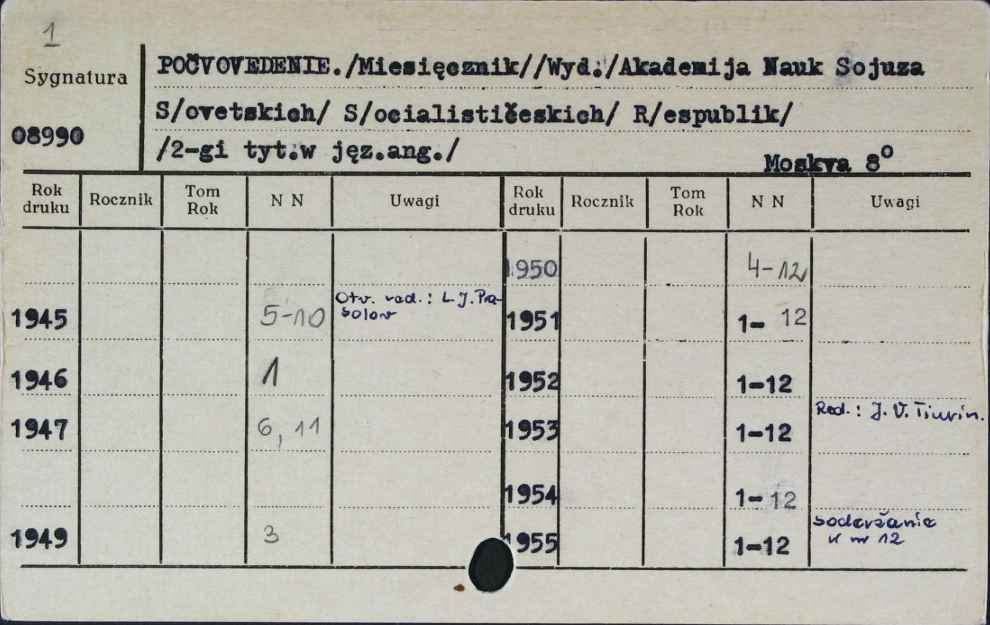 1
Sygnatura
08990
POČVOVEDENIE./Miesięcznik//Wyd./Akademija Nauk Sojuza
S/ovetskich/ S/ocialističeskich/ R/espublik/
/2-gi tyt.w jęz.ang./
Moskva 8°
Rok druku Rocznik Tom Rok N N Uwagi Rok druku Rocznik Tom Rok N N Uwagi
1950 4-12
1945 5-10 Otv. red.: L.J. Pra-
solov
1951 1-12
1946 1 1952 1-12
1947 6, 11 1953 1-12 Red.: J. V. Tiurin.
1954 1-12
1949 3 1955 1-12 soderžanie
v nr 12